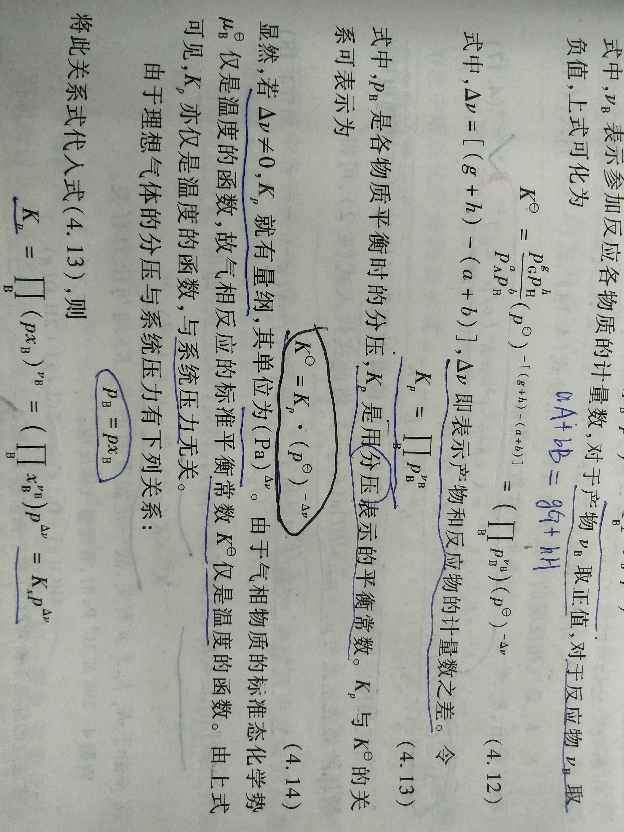 式中,ν_B 表示参加反应各物质的计量数,对于产物 ν_B 取正值,对于反应物 ν_B 取
负值,上式可化为
aA+bB=gG+hH
K^⊖ = \frac{p_G^g p_H^h}{p_A^a p_B^b}(p^⊖)^{-[(g+h)-(a+b)]} = (∏_B p_B^{ν_B})(p^⊖)^{-Δν} (4.12)
式中,Δν=[(g+h)-(a+b)],Δν 即表示产物和反应物的计量数之差。令
K_p = ∏_B p_B^{ν_B} (4.13)
式中,p_B 是各物质平衡时的分压,K_p 是用分压表示的平衡常数。K_p 与 K^⊖ 的关
系可表示为
K^⊖ = K_p · (p^⊖)^{-Δν} (4.14)
显然,若 Δν≠0,K_p 就有量纲,其单位为(Pa)^{Δν}。由于气相物质的标准态化学势
μ_B^⊖ 仅是温度的函数,故气相反应的标准平衡常数 K^⊖ 仅是温度的函数。由上式
可见,K_p 亦仅是温度的函数,与系统压力无关。
由于理想气体的分压与系统压力有下列关系:
p_B = px_B
将此关系式代入式(4.13),则
K_p = ∏_B (px_B)^{ν_B} = (∏_B x_B^{ν_B})p^{Δν} = K_x p^{Δν}